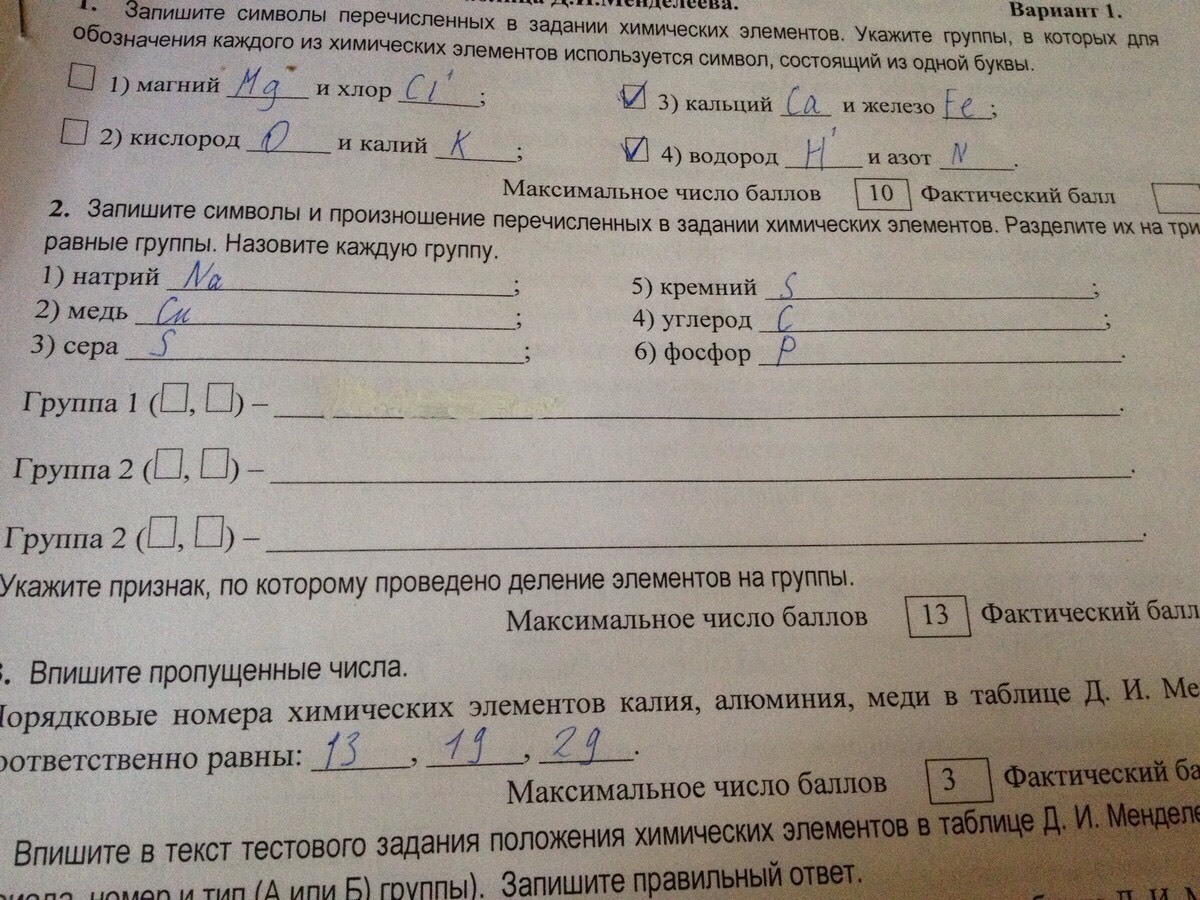 Д.И.Менделеева.
Вариант 1.
1. Запишите символы перечисленных в задании химических элементов. Укажите группы, в которых для
обозначения каждого из химических элементов используется символ, состоящий из одной буквы.
1) магний Mg и хлор Cl;
3) кальций Ca и железо Fe;
2) кислород O и калий K;
4) водород H и азот N.
Максимальное число баллов 10 Фактический балл
2. Запишите символы и произношение перечисленных в задании химических элементов. Разделите их на три
равные группы. Назовите каждую группу.
1) натрий Na;
5) кремний S;
2) медь Cu;
4) углерод C;
3) сера S;
6) фосфор P.
Группа 1 (, ) – .
Группа 2 (, ) – .
Группа 2 (, ) – .
Укажите признак, по которому проведено деление элементов на группы.
Максимальное число баллов 13 Фактический балл
3. Впишите пропущенные числа.
Порядковые номера химических элементов калия, алюминия, меди в таблице Д. И. Ме
оответственно равны: 13, 19, 29.
Максимальное число баллов 3 Фактический ба
Впишите в текст тестового задания положения химических элементов в таблице Д. И. Менделе
номер и тип (А или Б) группы). Запишите правильный ответ.